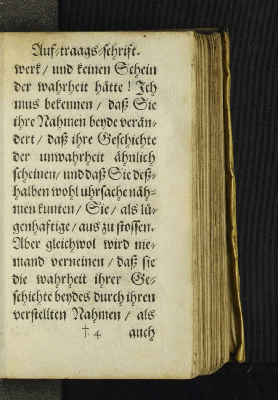 Auf⸗traags⸗ſchrift.
werk / und keinen Schein
der wahrheit hätte! Ich
mus bekennen / daß Sie
ihre Nahmen beyde verän⸗
dert / daß ihre Geſchichte
der unwahrheit ähnlich
ſcheinen / und daß Sie deß⸗
halben wohl uhrſache näh⸗
men kunten / Sie / als lü⸗
genhaftige / aus zu ſtoſſen.
Aber gleichwol wird nie⸗
mand verneinen / daß ſie
die wahrheit ihrer Ge⸗
ſchichte beydes durch ihren
verſtellten Nahmen / als
† 4 auch